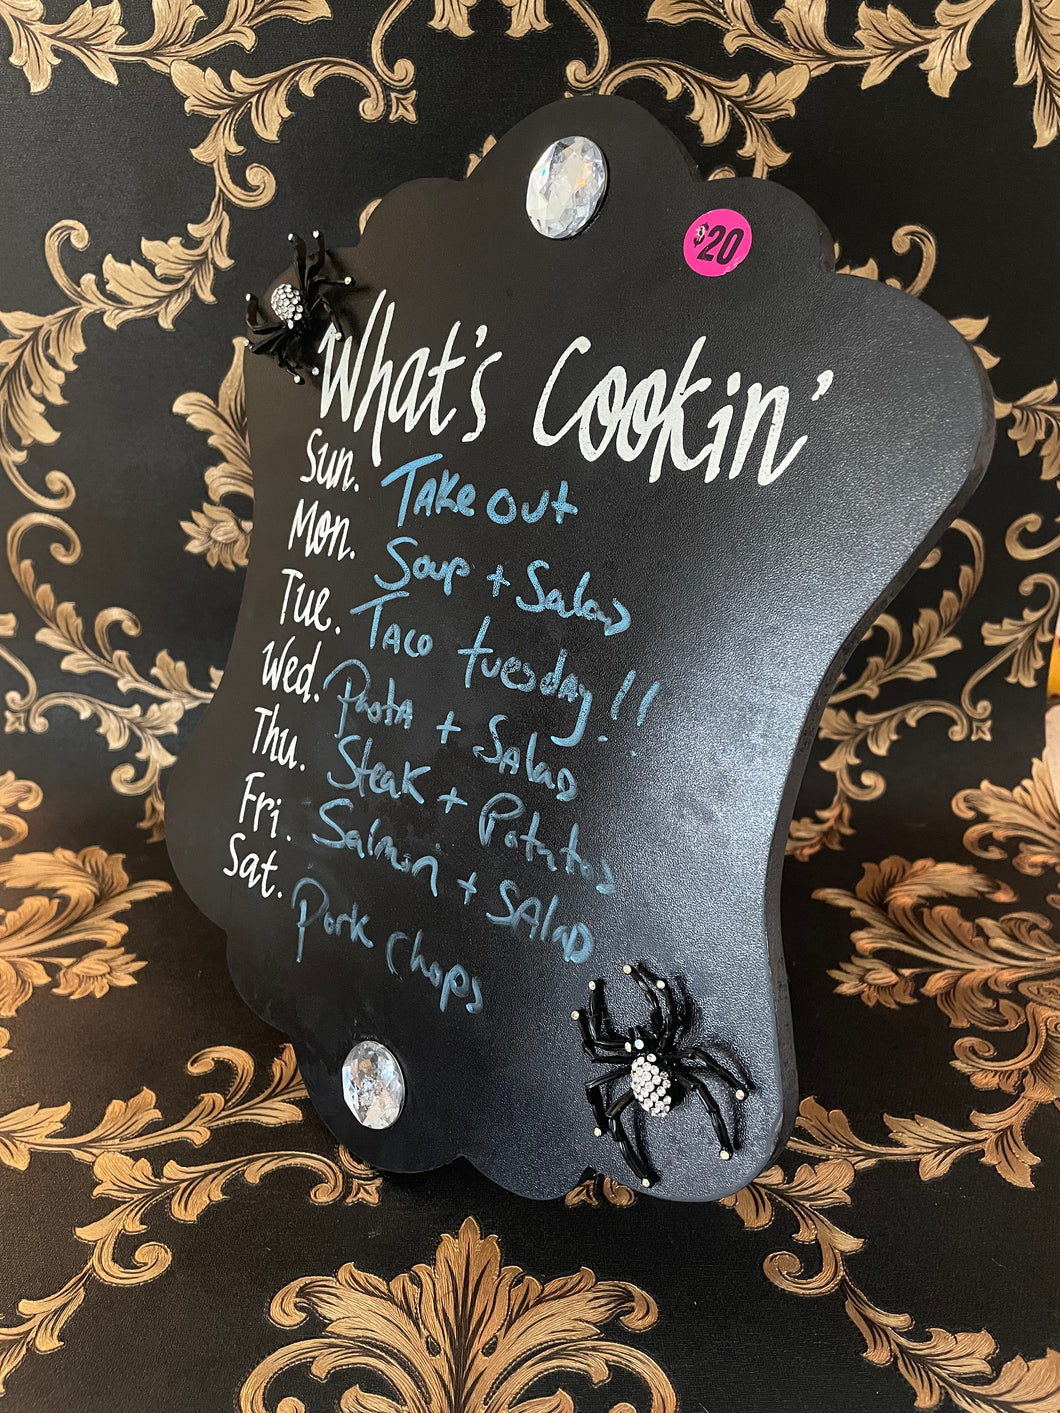 $20
What's Cookin'
Sun. TAKe OUt
Mon. Soup + Salad
Tue. TACO tuesday!!
Wed. PastA + SAlad
Thu. Steak + Potatos
Fri. Salmon + SAlaD
Sat. Pork chops